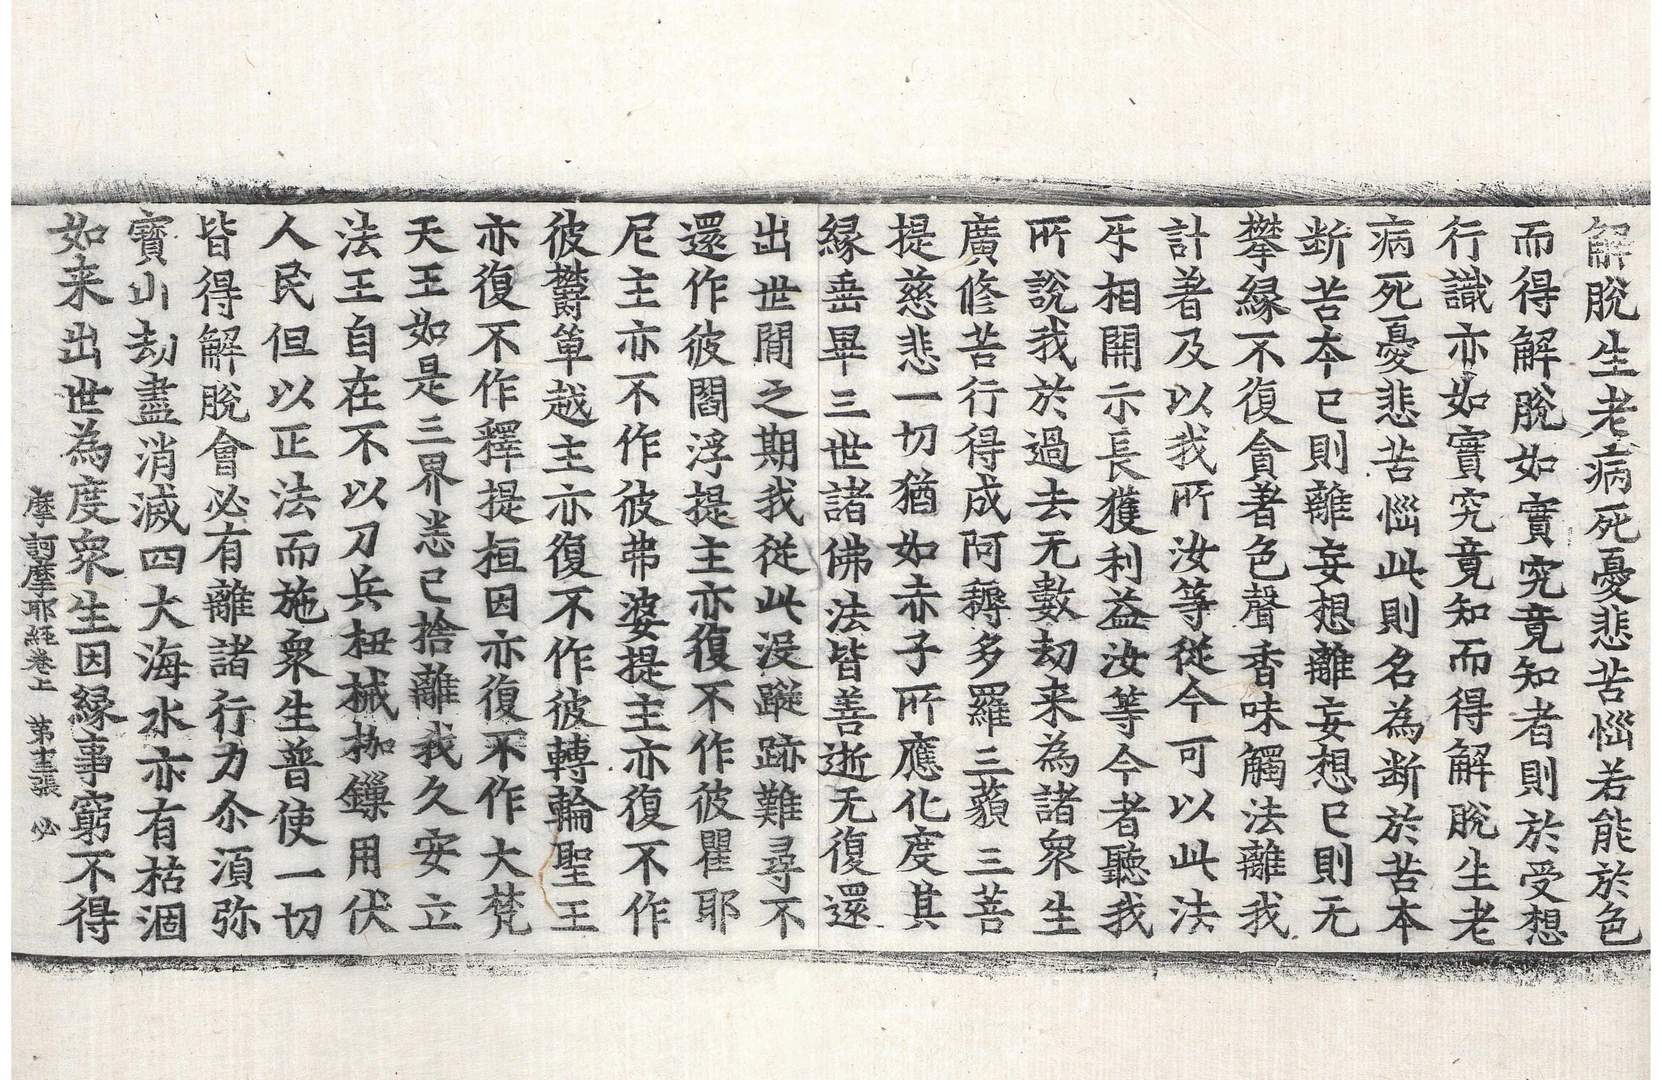 解脫生老病死憂悲苦惱若能於色
而得解脫如實究竟知者則於受想
行識亦如實究竟知而得解脫生老
病死憂悲苦惱此則名為斷於苦本
断苦本已則離妄想離妄想已則无
攀緣不復貪著色聲香味觸法離我
計著及以我所汝等從今可以此法
㸦相開示長獲利益汝等今者聽我
所說我於過去无數劫来為諸衆生
廣修苦行得成阿耨多羅三藐三菩
提慈悲一切猶如赤子所應化度其
緣垂畢三世諸佛法皆善逝无復還
出世閒之期我從此沒蹤跡難尋不
還作彼閻浮提主亦復不作彼瞿耶
尼主亦不作彼弗婆提主亦復不作
彼欝單越主亦復不作彼轉輪聖王
亦復不作釋提桓因亦復不作大梵
天王如是三界悉已捨離我久安立
法王自在不以刀兵杻械枷鏁用伏
人民但以正法而施衆生普使一切
皆得解脫會必有離諸行力尒湏弥
寶山劫盡消滅四大海水亦有枯涸
如来出世為度衆生因緣事窮不得
摩訶摩耶經卷上 第十三張 必